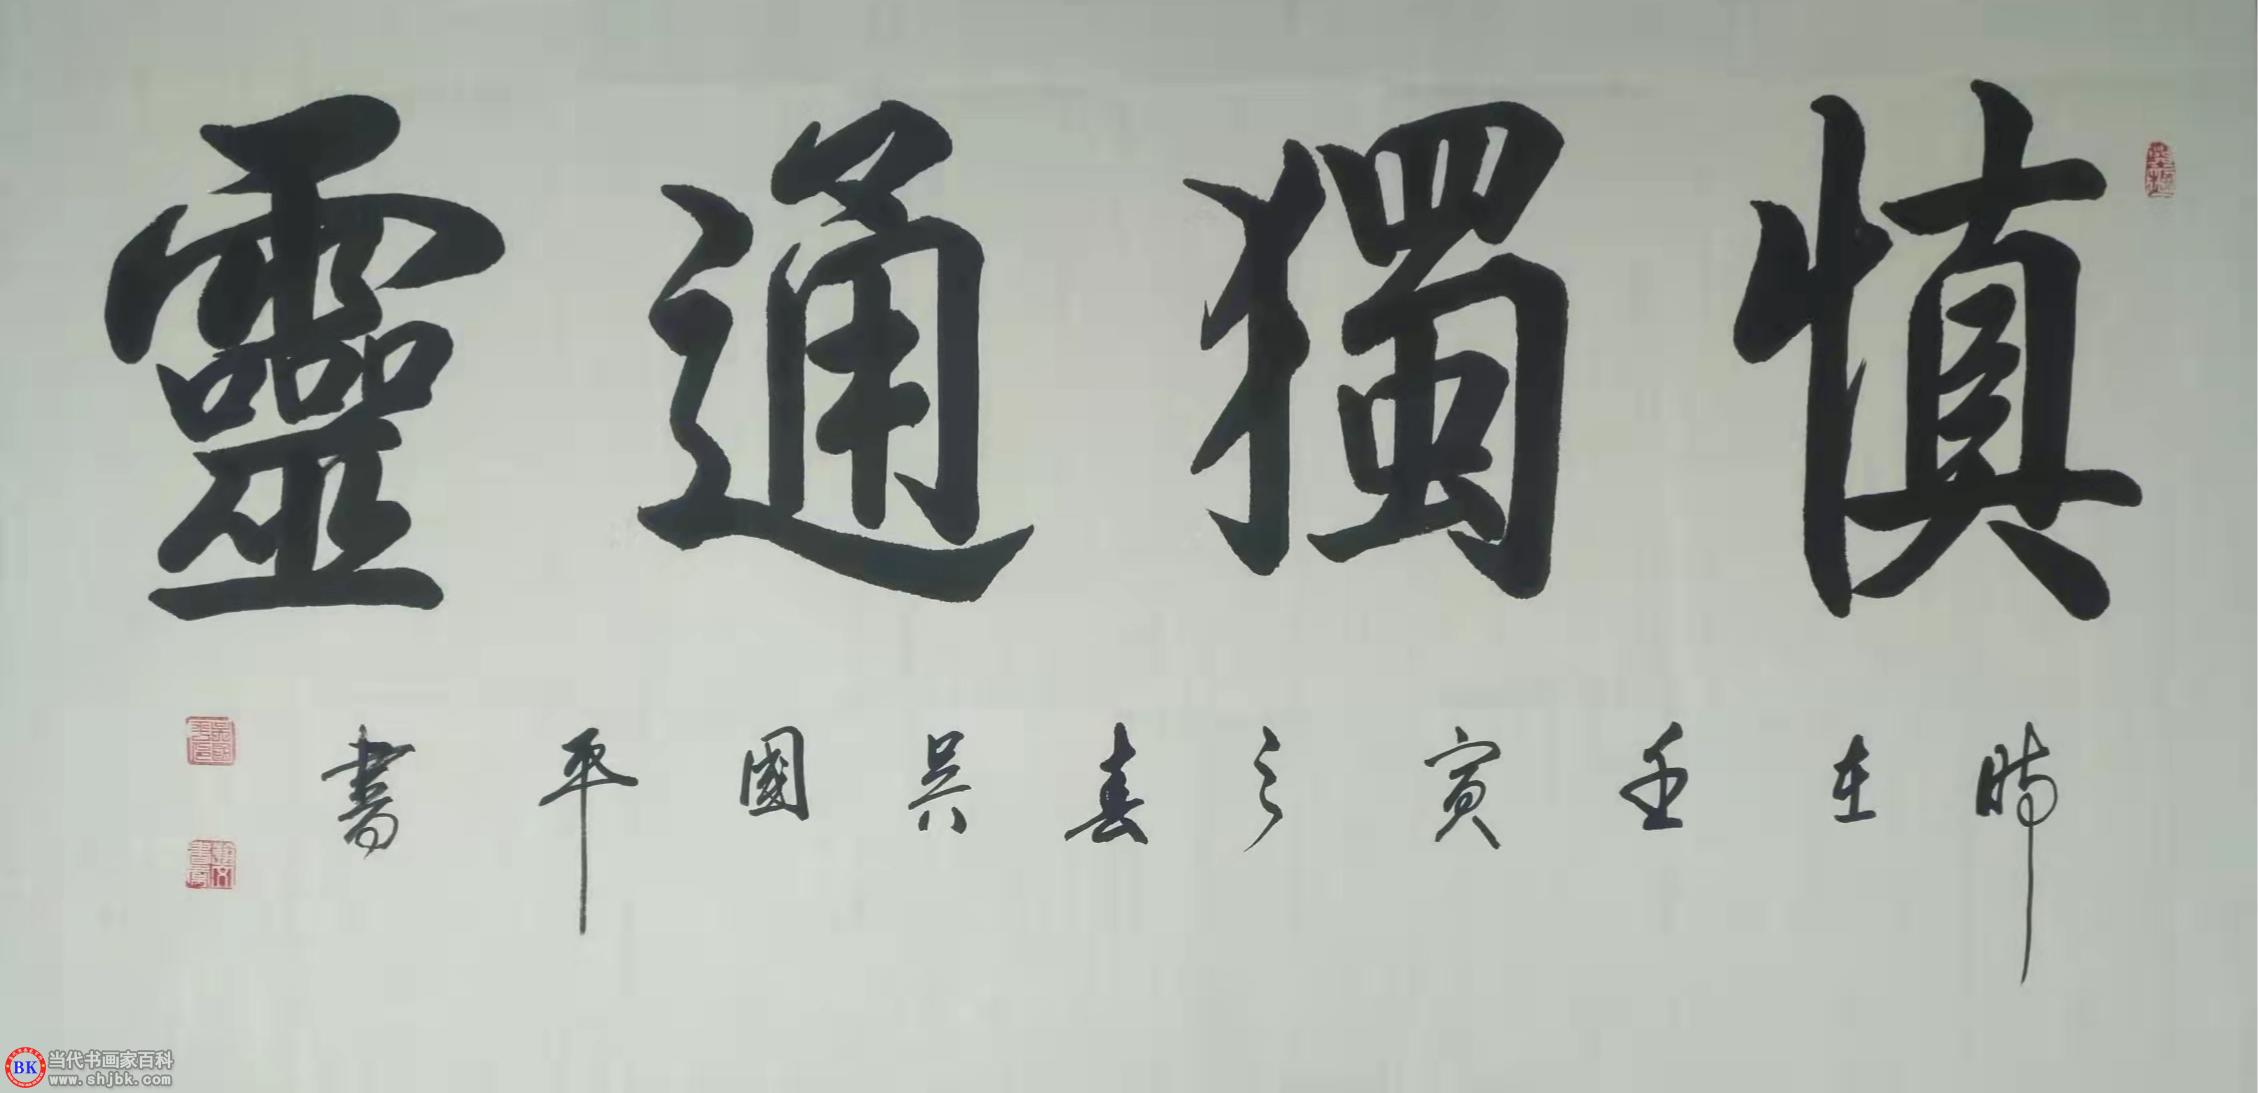 慎獨通靈
時在壬寅之春吳國平書
BK 当代书画家百科
www.shjbk.com